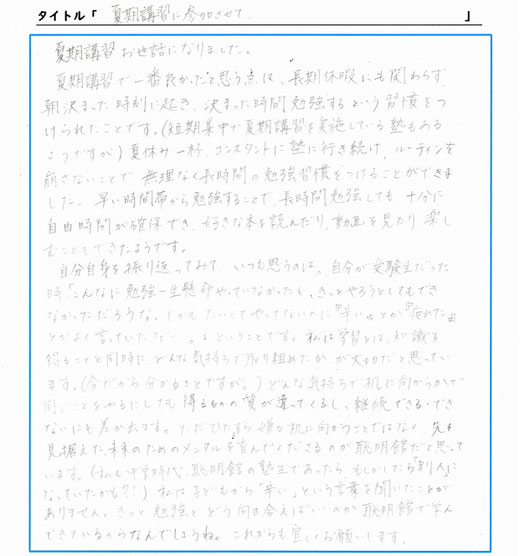 タイトル「 夏期講習に参加させて 」
夏期講習お世話になりました。
夏期講習で一番良かったと思う点は、長期休暇にも関わらず、
朝決まった時刻に起き、決まった時間勉強するという習慣をつ
けられたことです。(短期集中で夏期講習を実施している塾もある
ようですが)夏休み一杯、コンスタントに塾に行き続け、ルーティンを
崩さないことで、無理なく長時間の勉強習慣をつけることができま
した。早い時間帯から勉強することで、長時間勉強しても、十分に
自由時間が確保でき、好きな本を読んだり、動画を見たり、楽し
むこともできたようです。
自分自身を振り返ってみて、いつも思うのは、自分が受験生だった
時、「こんなに勉強一生懸命やっていなかったし、きっとやろうとしてもでき
なかっただろうな。しかもたいしてやってないのに『辛い』とか『疲れた』
とかよく言っていたな…。」ということです。私は学習とは、知識を
得ることと同時に、どんな気持ちで取り組めたか、が大切だと思ってい
ます。(今だから分かることですが。)どんな気持ちで机に向かうかで
同じことをやるにしても得るものの質が違ってくるし、継続できる・でき
ないにも差が出ます。ただひたすら嫌々机に向かうことではなく、先を
見据えた、未来のためのメンタルを育んでくださるのが聡明館だと思って
います。(私も中学時代、聡明館の塾生であったら、もしかしたら「別人」に
なっていたかも?!)私は子どもから「辛い」という言葉を聞いたことが
ありません。きっと勉強とどう向き合えばいいのか聡明館で学ん
できているからなんでしょうね。これからも宜しくお願いします。